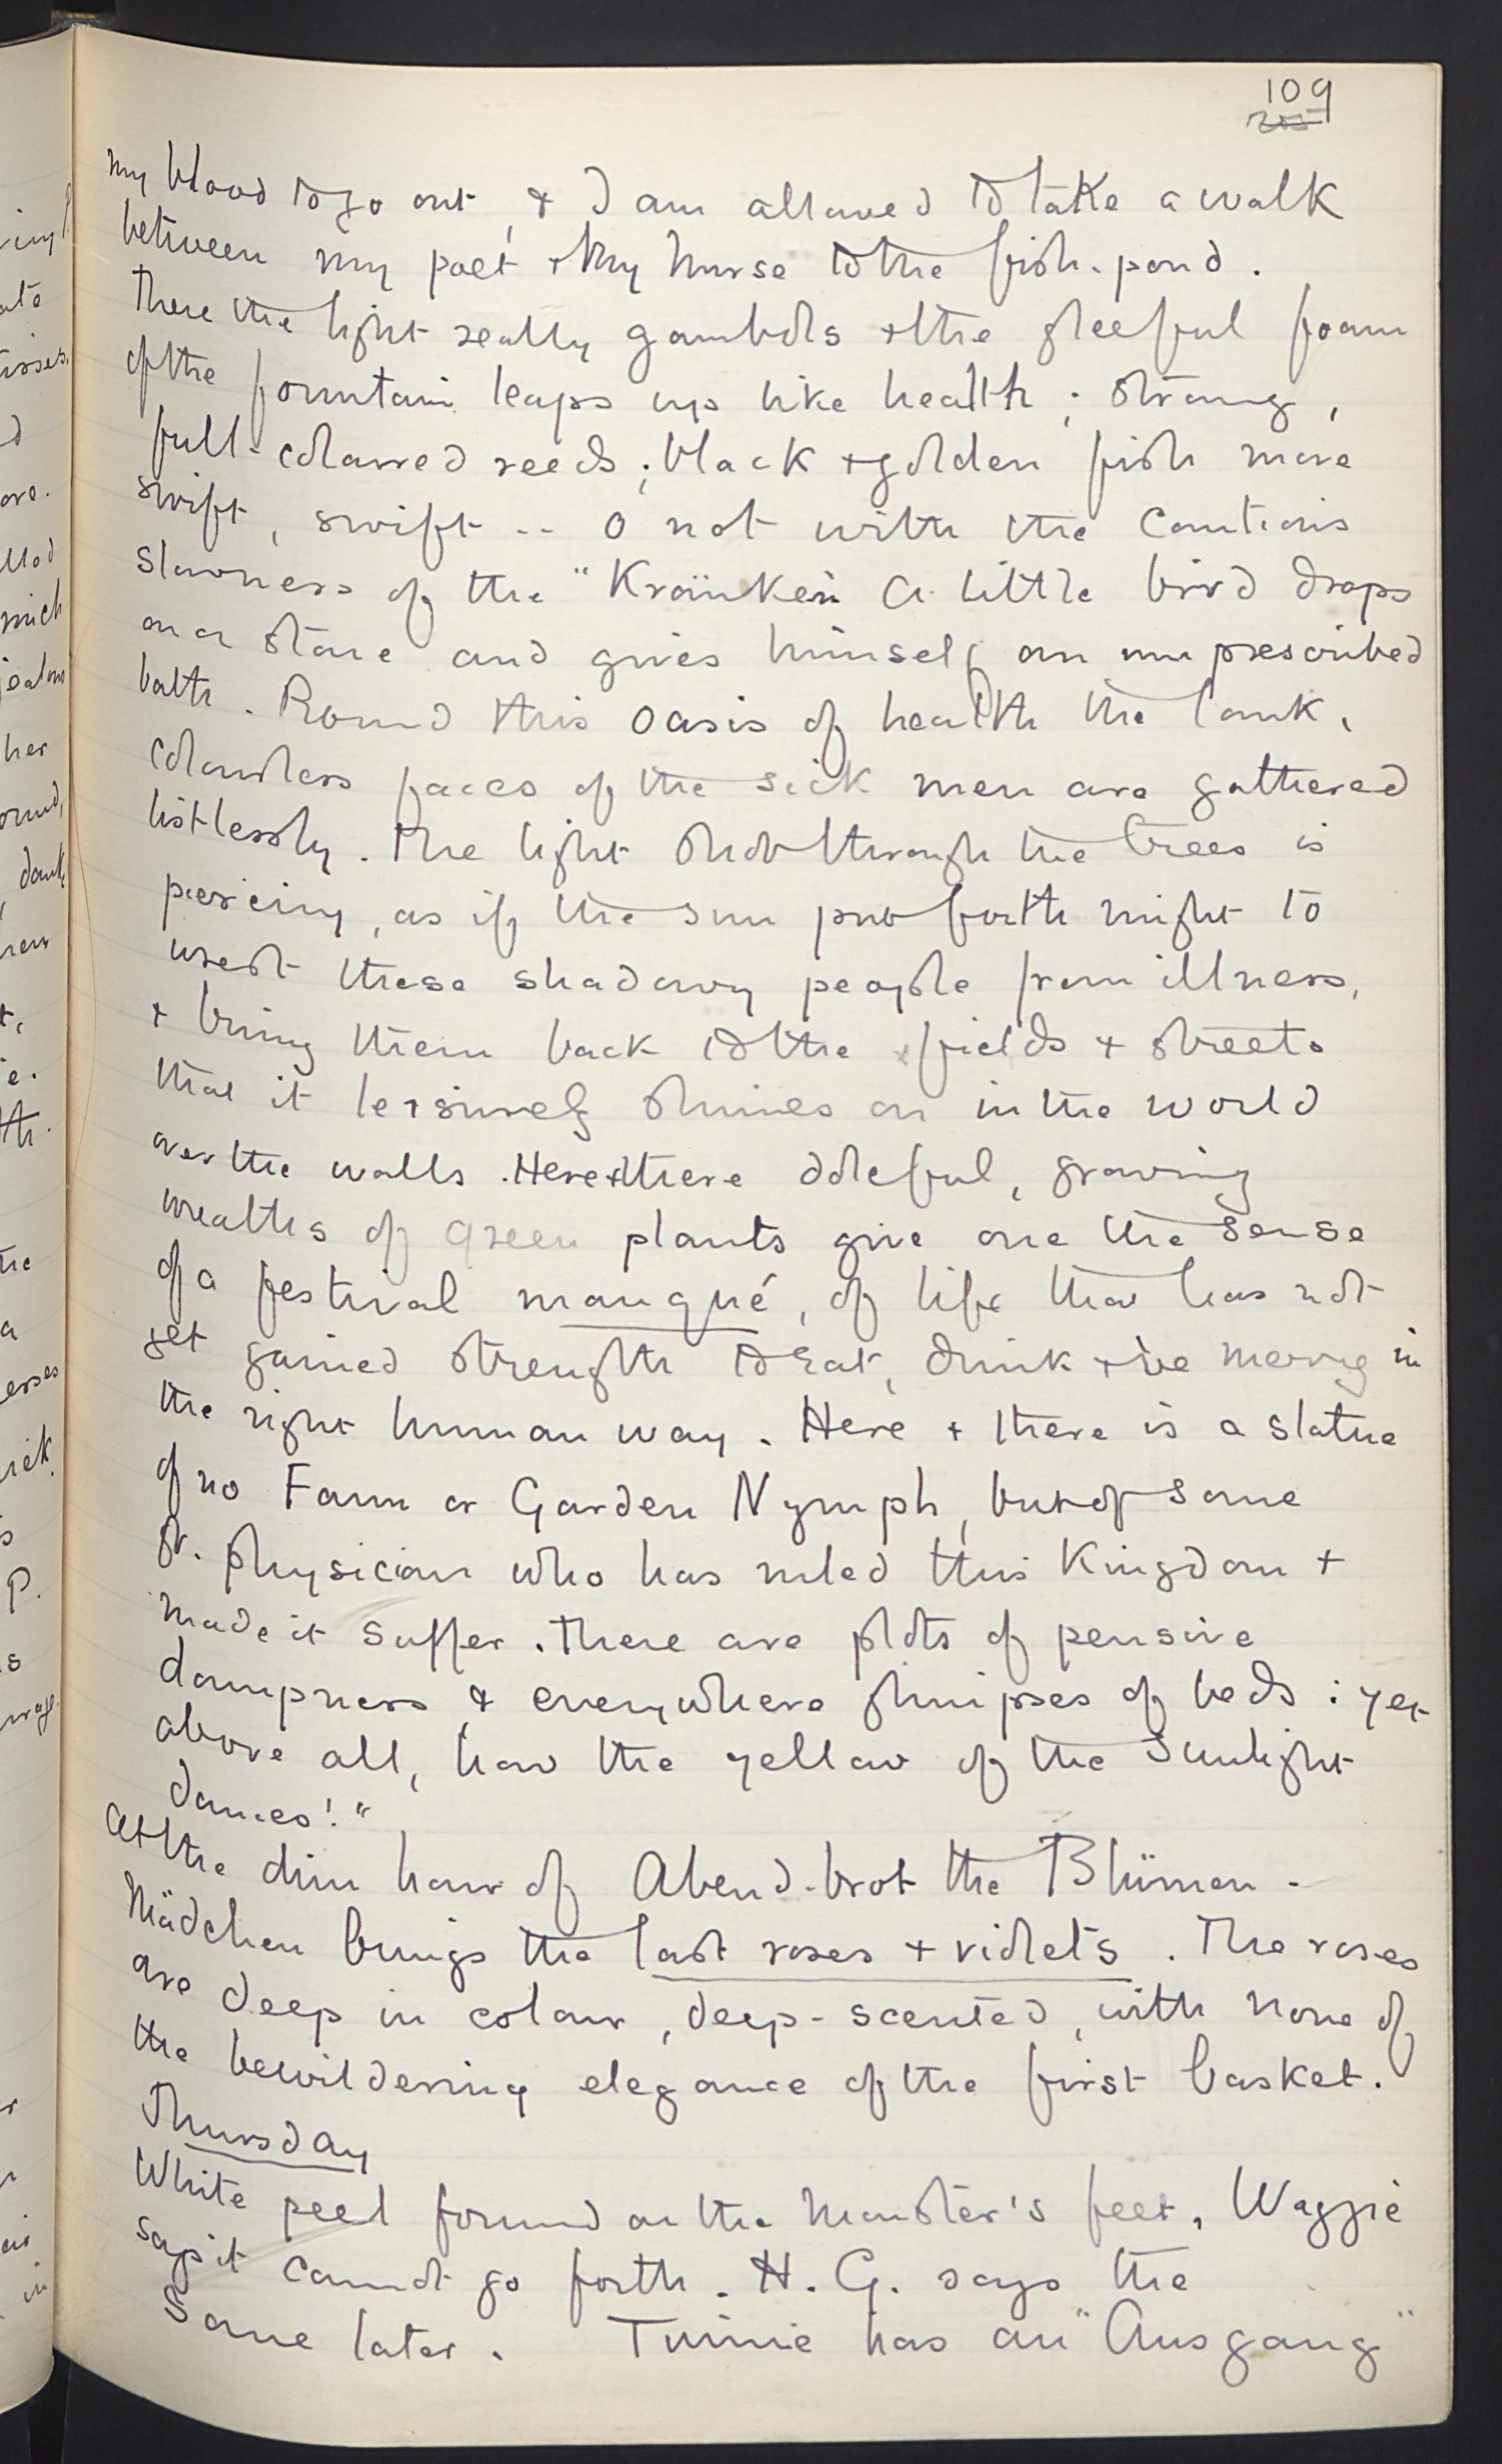 109
my blood to go out, & I am allowed to take a walk
between my poet & my nurse to the fish-pond.
There the light really gambols & the gleeful foam
of the fountain leaps up like health; strong,
full-coloured reeds; black & golden fish move
swift, swift -- O not with the cautious
slowness of the "Kränken A little bird drops
on a stone and gives himself an unprescribed
bath. Round this oasis of health the lank,
colourless faces of the sick men are gathered
listlessly. The light shot through the trees is
piercing, as if the sun put forth might to
wrest these shadowy people from illness,
& bring them back to the fields & streets
that it leisurely shines on in the world
over the walls. Here & there doleful, growing
wreaths of green plants give one the sense
of a festival manqué, of life that has not
yet gained strength to eat, drink & be merry in
the right human way. Here & there is a statue
of no Faun or Garden Nymph, but of some
gr. physician who has ruled this Kingdom &
made it suffer. There are plots of pensive
dampness & everywhere glimpses of beds: yet
above all, how the yellow of the Sunlight
dances!"
At the dim hour of Abend-brot the Blümen-
Mädchen brings the last roses & violets. The roses
are deep in colour, deep-scented, with none of
the bewildering elegance of the first basket.
Thursday
White peel found on the Monster's feet, Waggie
says it cannot go forth. H. G. says the
Same later. Tinnie has an "Ausgang"